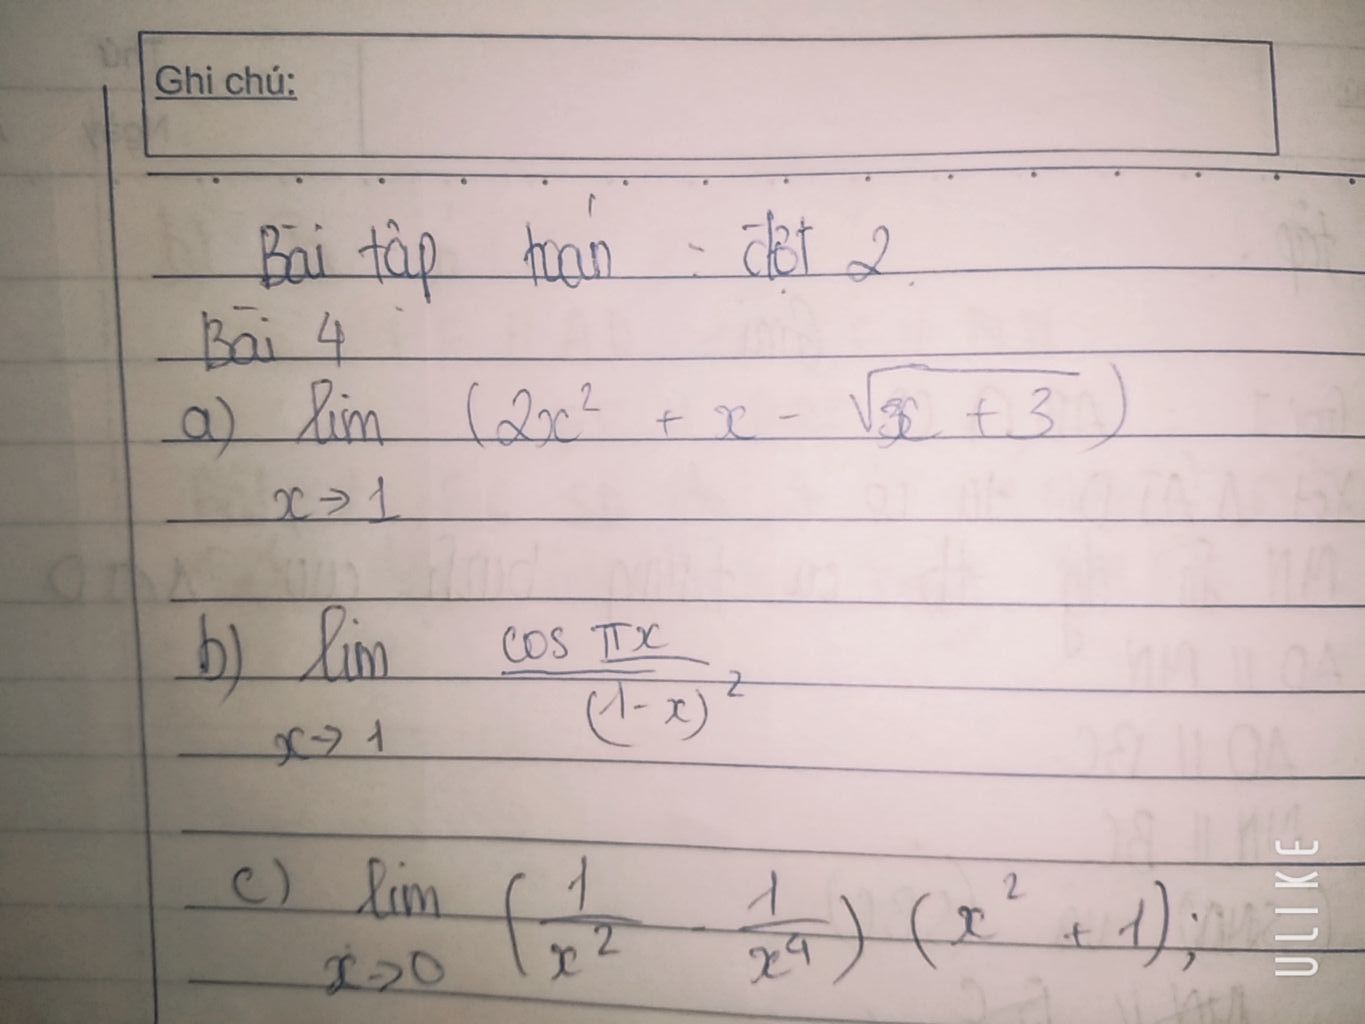 Ghi chú:
Bài tập toán : đợt 2
Bài 4
a) lim (2x² + x - √(x + 3))
x→1
b) lim cos πx / (1-x)²
x→1
c) lim (1/x² - 1/x⁴) (x² + 1);
x→0
ULIKE